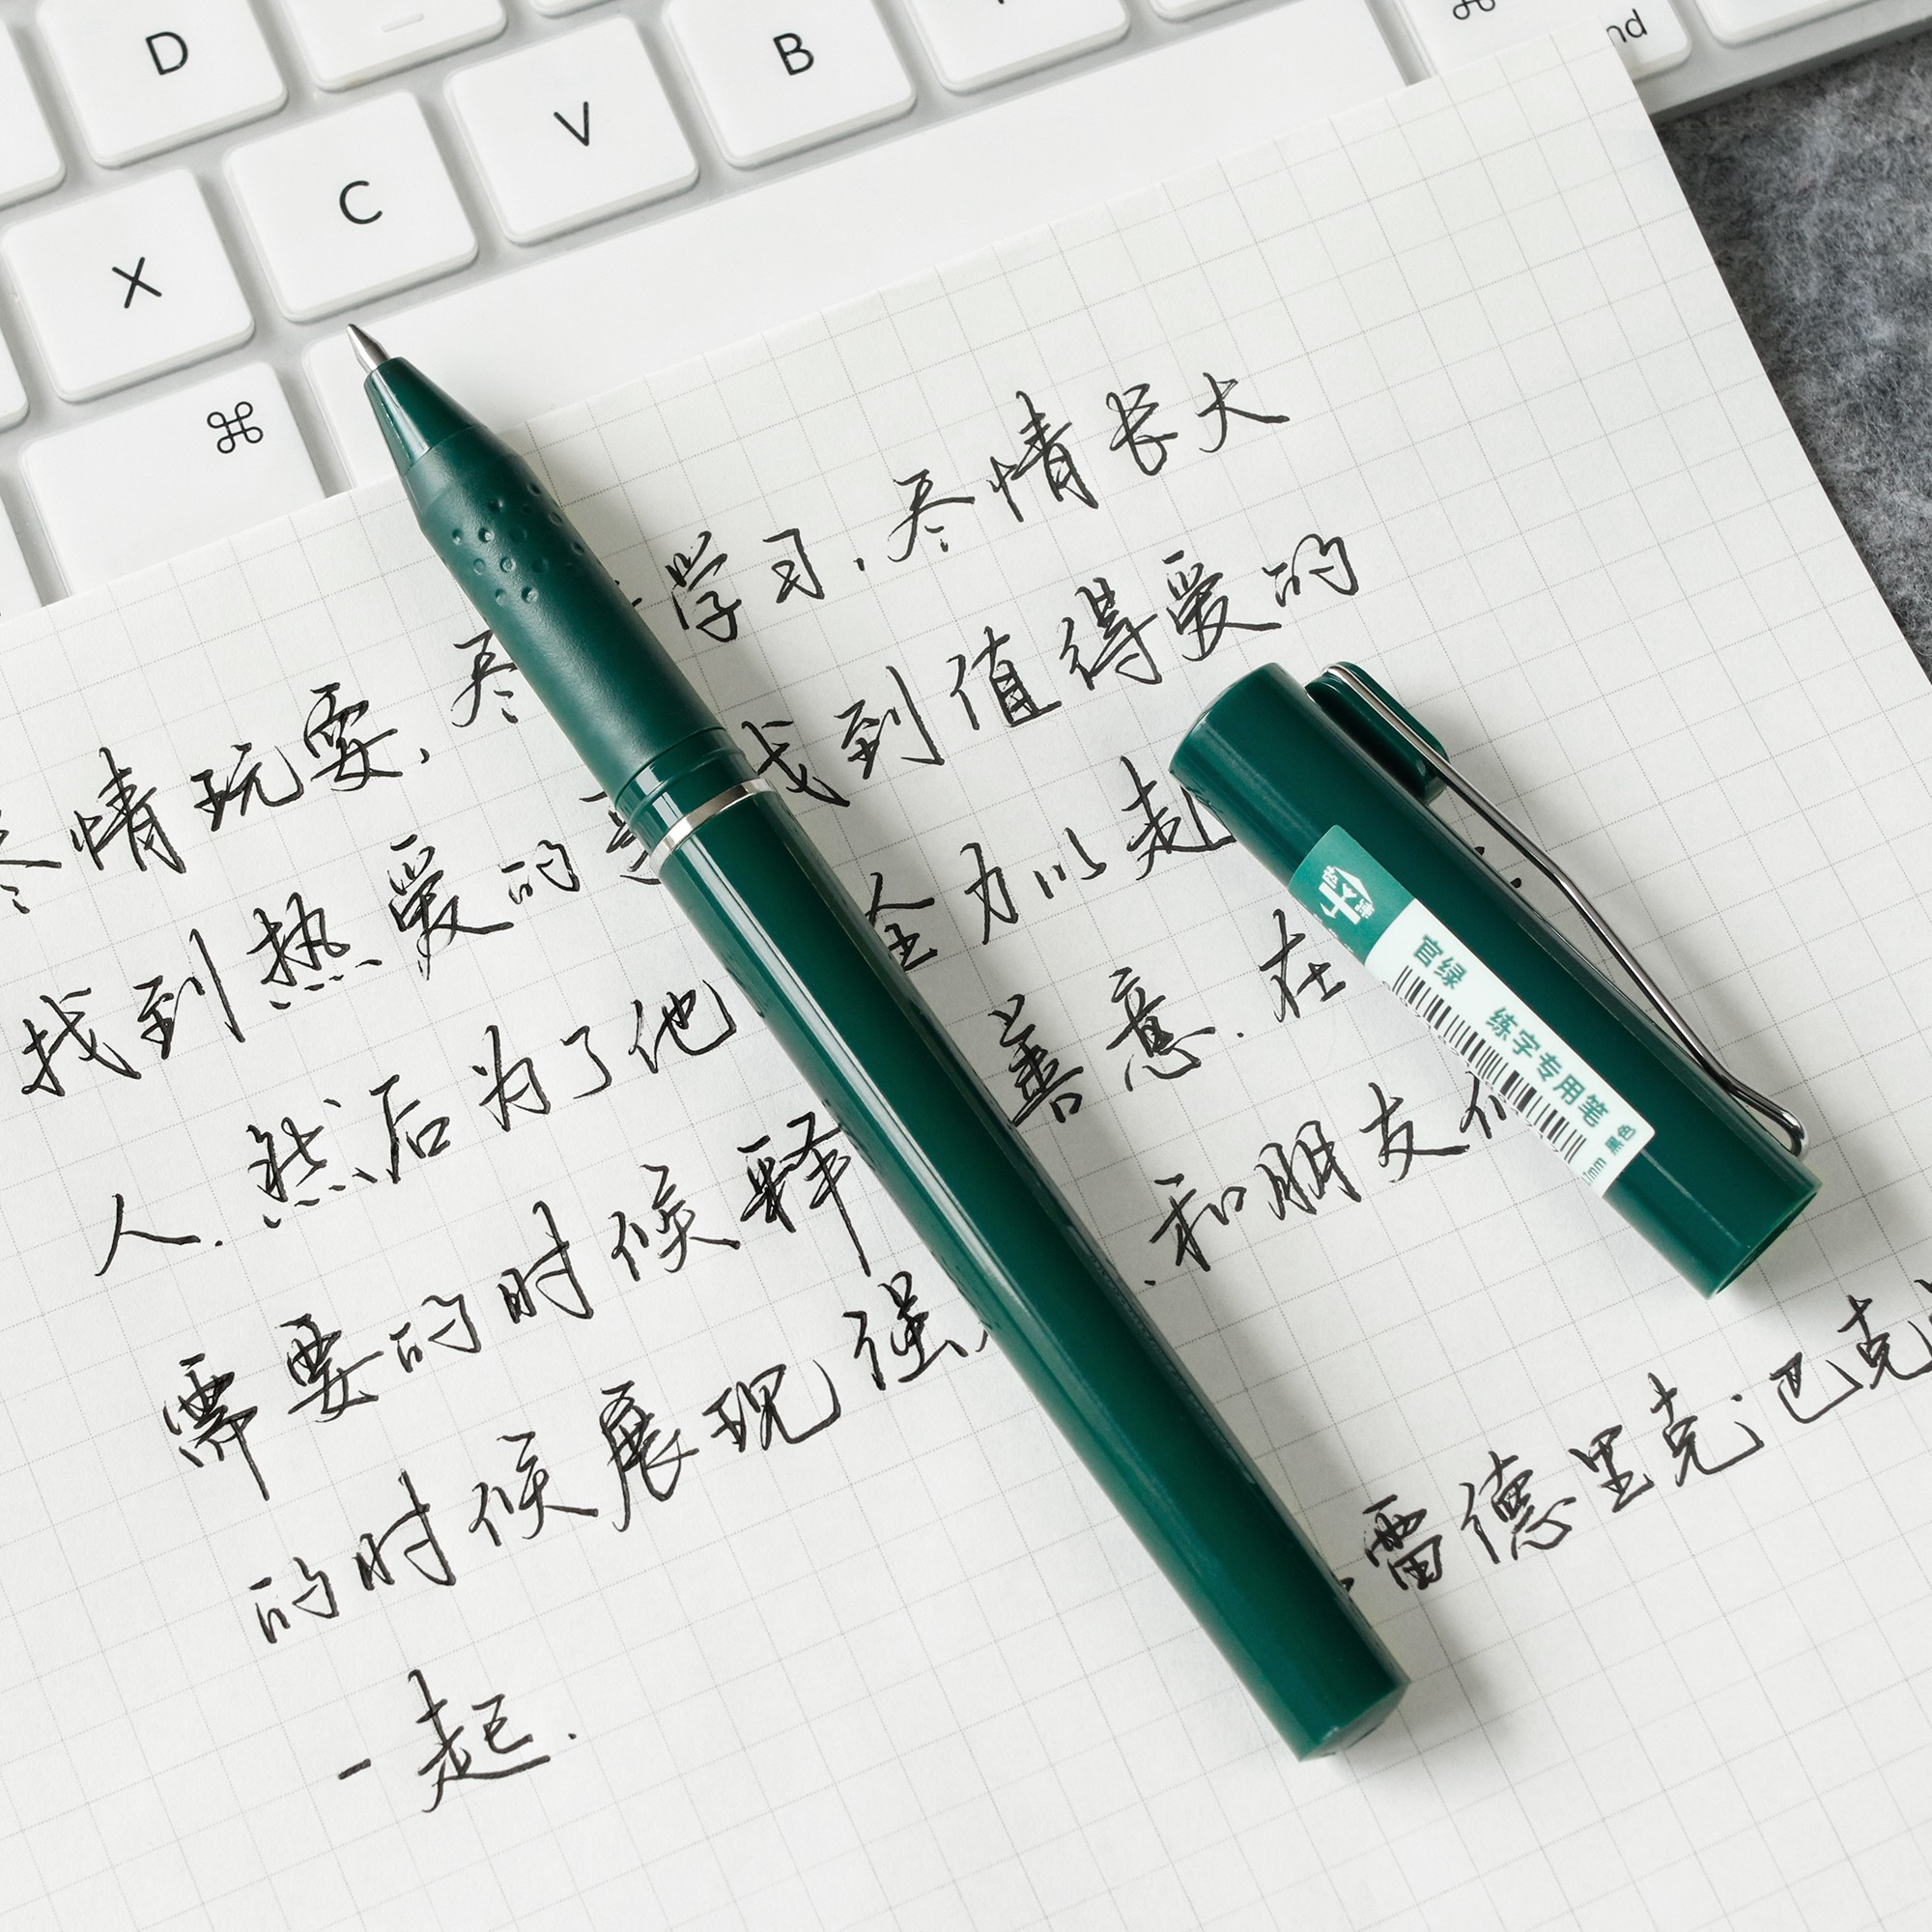 D
B
V
C
X
⌘
⌘
nd
情玩耍,尽 学习.尽情长大
找到热爱的 找到值得爱的
人.然后为了他 全力以赴
需要的时候释 善意.在
的时候展现强 .和朋友
一起.
雷德里克·巴克
官绿 练字专用笔
黑色